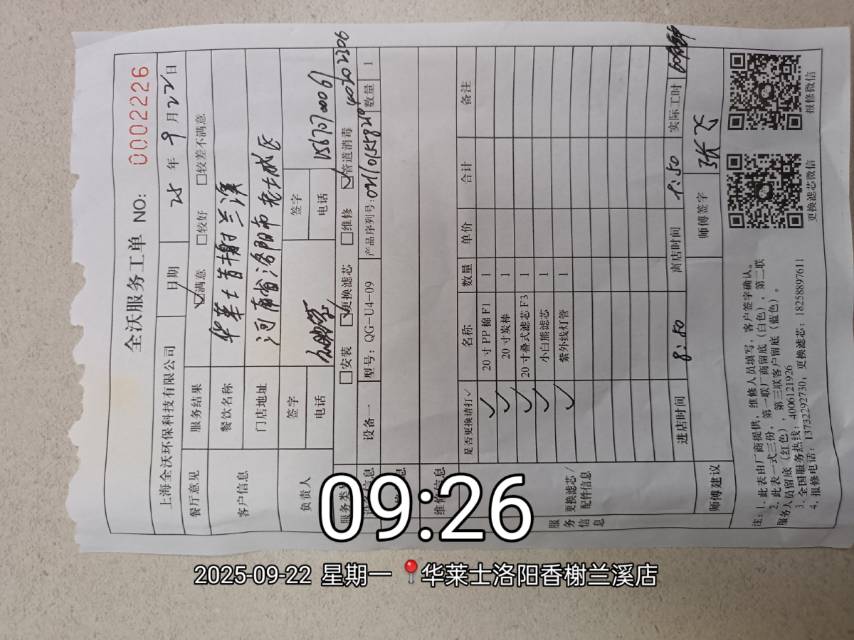 全沃服务工单 NO: 0002226
上海全沃环保科技有限公司 日期 25 年 9 月 22 日
餐厅意见 服务结果 ☑满意 □较好 □较差不满意
客户信息 餐饮名称 华莱士香榭兰溪
门店地址 河南省洛阳市老城区
负责人 签字 签字
电话 电话 15673700067
□安装 ☑更换滤芯 □维修 ☑管道消毒
设备一 型号: QG-U4-09 产品序列号: 数量 1
维修信息
服务信息
更换滤芯/配件信息
是否更换请打✓ 名称 数量 单价 合计 备注
✓ 20 寸 PP 棉 F1 1
✓ 20 寸炭棒 1
✓ 20 寸叠式滤芯 F3 1
✓ 小白熊滤芯 1
✓ 紫外线灯管 1
进店时间 8:50 离店时间 9:50 实际工时
师傅建议 师傅签字 张飞
更换滤芯微信 报修微信
注: 1、此表由厂商提供, 维修人员填写, 客户签字确认。
2、此表一式三份, 第一联厂商留底 (白色), 第二联
服务人员留底 (红色), 第三联客户留底 (蓝色)。
3、全国服务热线: 4006121926
4、报修电话: 13732292730, 更换滤芯: 18258897611
09:26
2025-09-22 星期一 📍华莱士洛阳香榭兰溪店